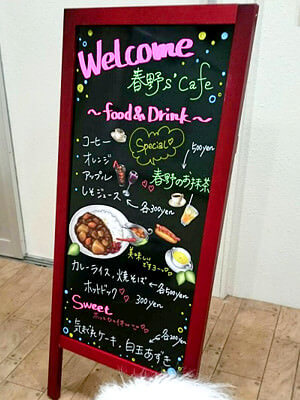 Welcome
春野s' Cafe
～food&Drink～
Special♡
500yen
春野のお抹茶
・コーヒー
・オレンジ
・アップル
・しそジュース ← 各300yen
美味しい
ですヨ〜♪
カレーライス、焼そば ← 各500yen
ホットドック♡ 300yen
Sweet
各300yen
気まぐれケーキ、白玉あずき